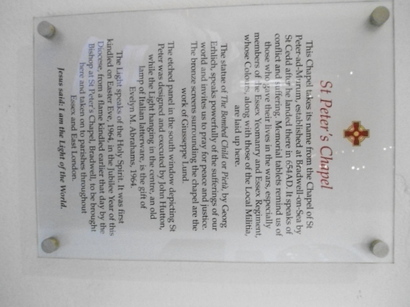 St Peter's Chapel
This Chapel takes its name from the Chapel of St
Peter-ad-Murum, established at Bradwell-on-Sea by
St Cedd after he landed there in 654AD. It speaks of
conflict and suffering. Memorial tablets remind us of
those who gave their lives in the wars, especially
members of the Essex Yeomanry and Essex Regiment,
whose Colours, along with those of the Local Militia,
are laid up here.
The statue of The Bombed Child or Pietà, by Georg
Ehrlich, speaks powerfully of the sufferings of our
world and invites us to pray for peace and justice.
The bronze screens surrounding the chapel are the
work of Guiseppe Lund.
The etched panel in the south window depicting St
Peter was designed and executed by John Hutton,
while the Light hanging in the centre, an old
lamp of Italian lattenware, are the gift of
Evelyn M. Abrahams, 1964.
The Light speaks of the Holy Spirit. It was first
kindled on Easter Eve, 1964, in the Jubilee Year of this
Diocese, from a flame kindled earlier that day by the
Bishop at St Peter's Chapel, Bradwell, to be brought
here and taken on to parishes throughout
Essex and East London.
Jesus said: I am the Light of the World.